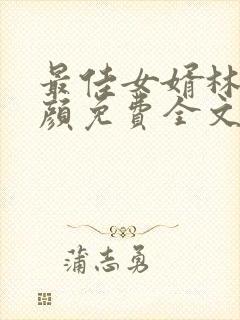 最佳女婿林
颜免费全文
蒲志勇